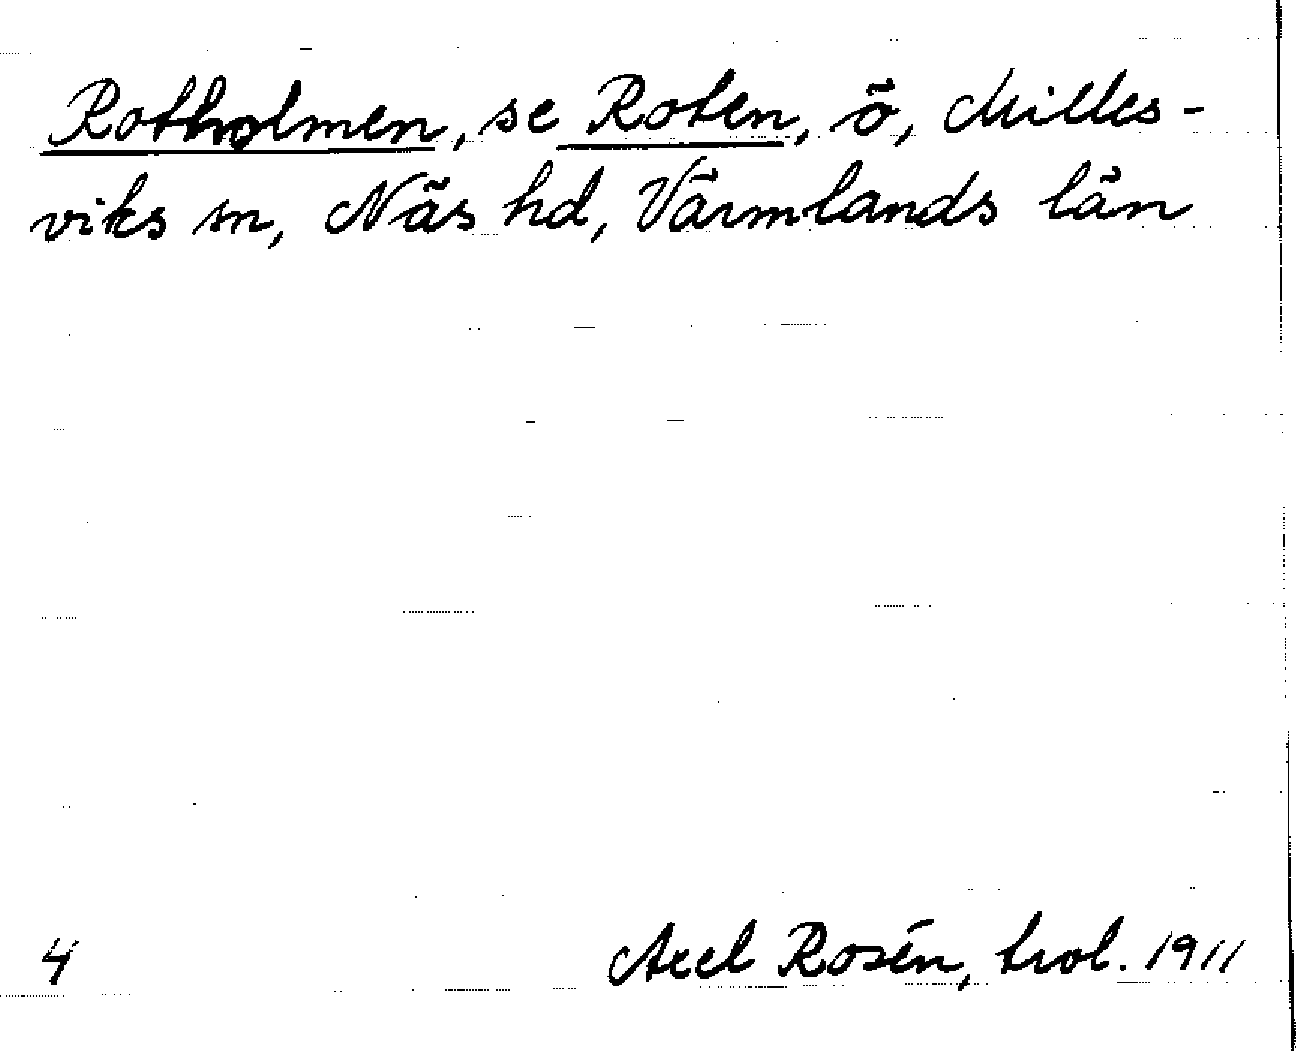 Rotholmen, se Roten, ö, Milles-
viks sn, Näs hd, Värmlands län
4
Axel Rosén, trol. 1911